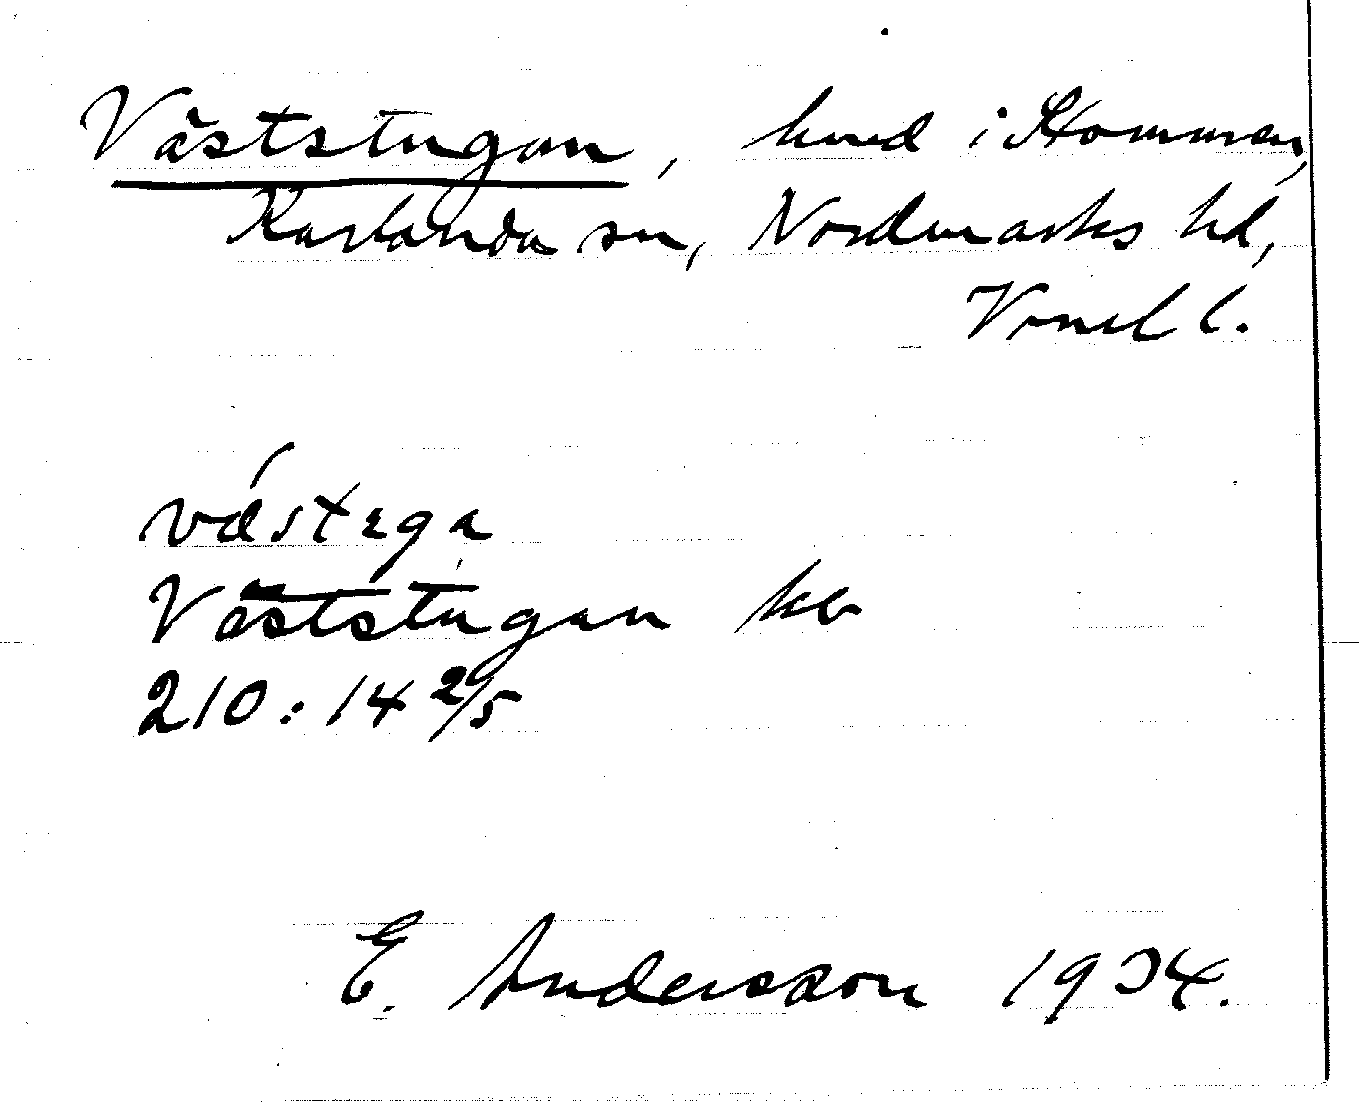 Väststugan, hmd i Hommen,
Karlanda sn, Nordmarks hd,
Vrml l.
västega
Väststugan
210:14 2/5
E. Andersson 1934.